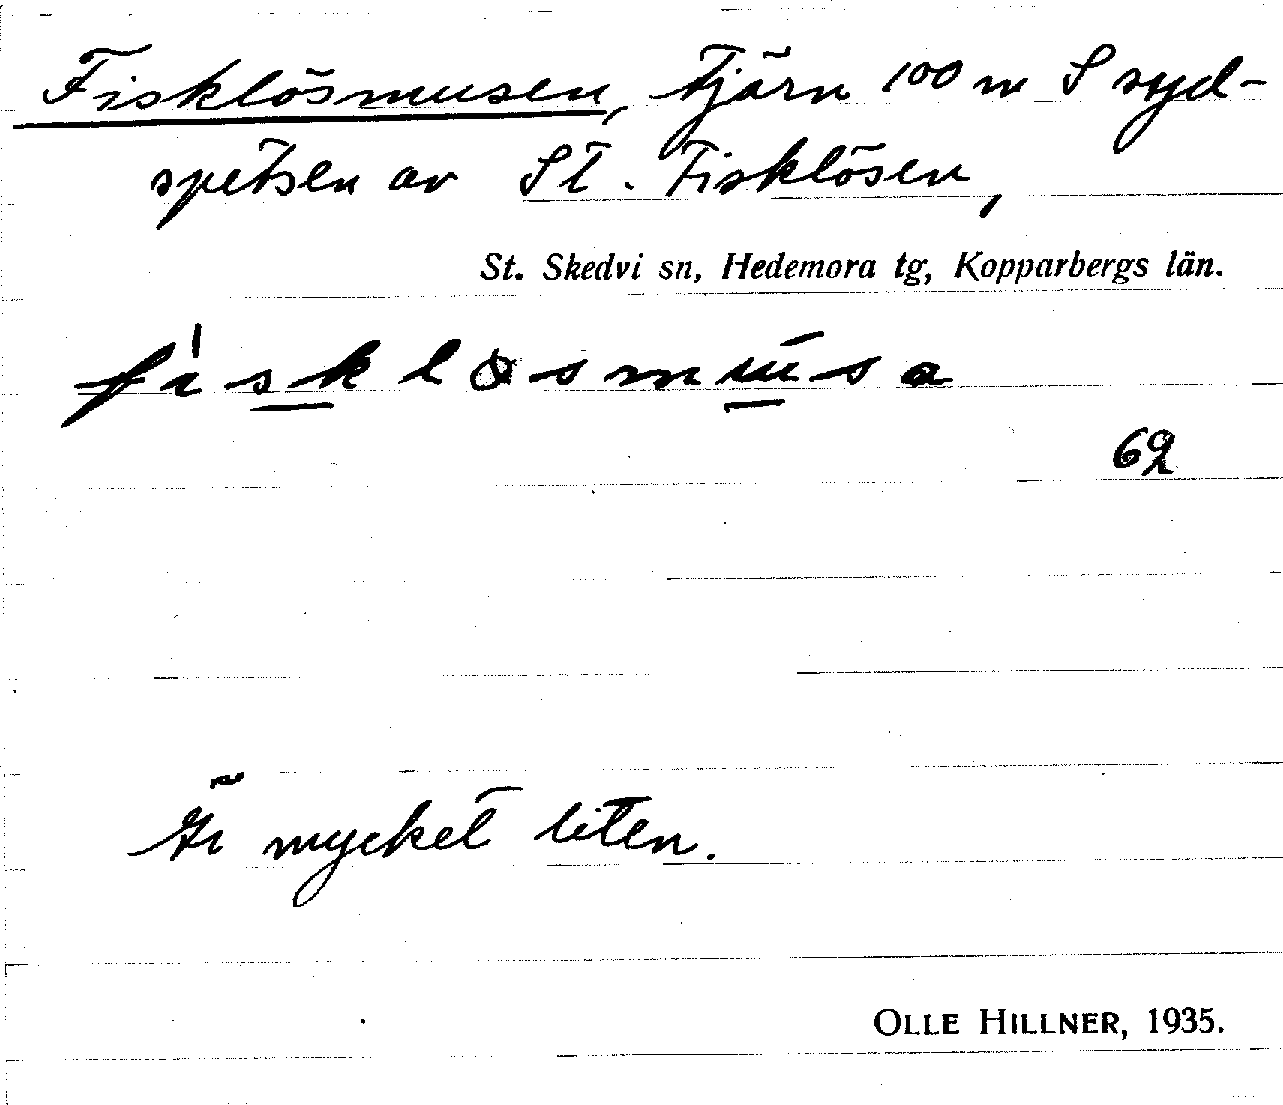 Fisklösmusen, tjärn 100 m S syd-
spetsen av St. Fisklösen,
St. Skedvi sn, Hedemora tg, Kopparbergs län.
fìsklɷsmúsa
62
Är mycket liten.
OLLE HILLNER, 1935.